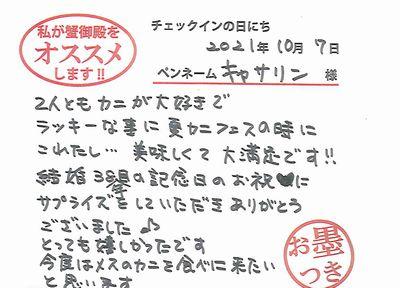 私が蟹御殿を
オススメ
します!!
チェックインの日にち
2021年10月7日
ペンネーム キャサリン 様
2人ともカニが大好きで
ラッキーな事に夏カニフェスの時に
これたし… 美味しくて大満足です!!
結婚38周の記念日のお祝♥に
サプライズをしていただきありがとう
ございました♪
とっても嬉しかったです
今度はメスのカニを食べに来たい
と思います
お墨
つき